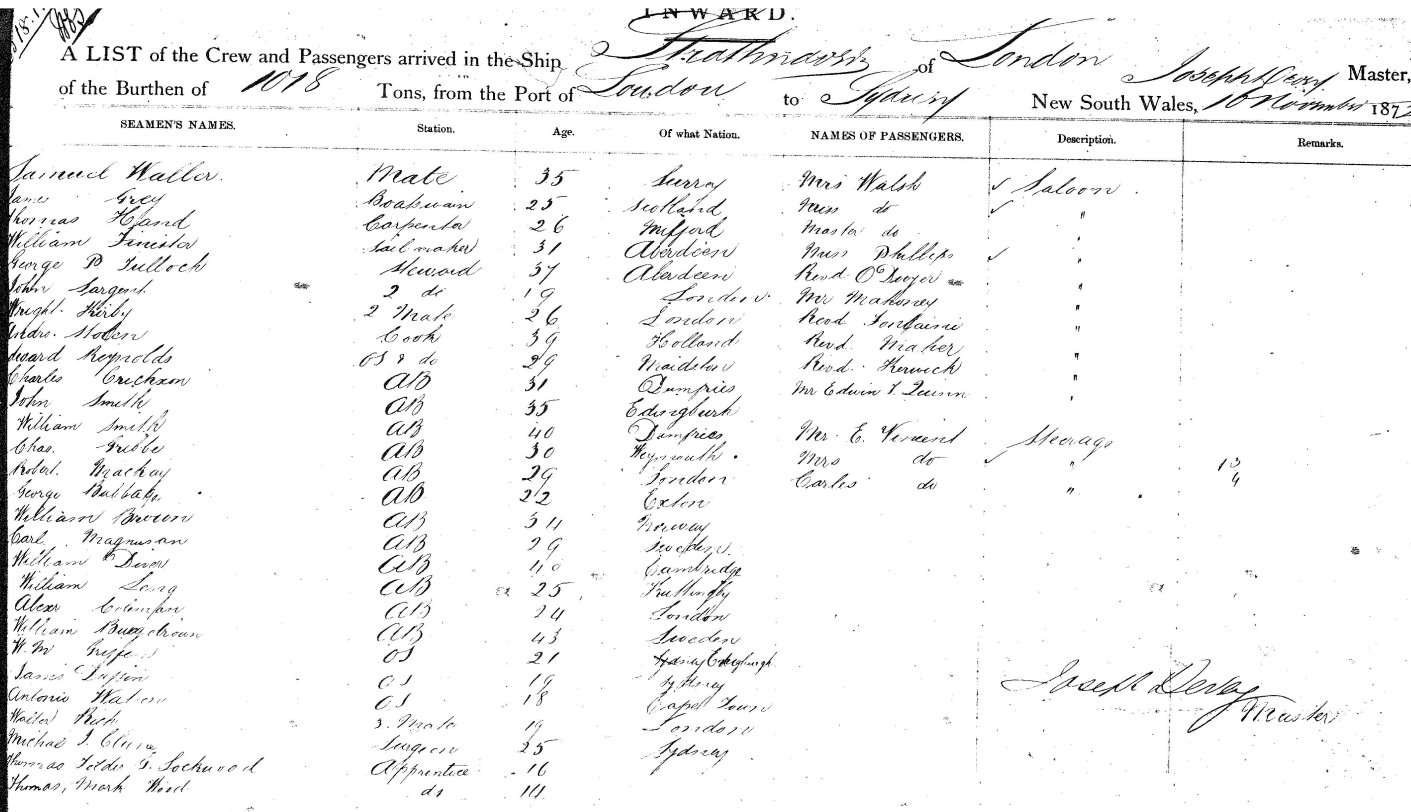 INWARD.
A LIST of the Crew and Passengers arrived in the Ship Strathnaver of London Joseph Devey Master,
of the Burthen of 1018 Tons, from the Port of London to Sydney New South Wales, 16 November 187
SEAMEN'S NAMES. Station. Age. Of what Nation. NAMES OF PASSENGERS. Description. Remarks.
Samuel Waller. Mate 35 Surrey Mrs Walsh Saloon
James Grey Boatswain 25 Scotland Miss do "
Thomas Hand Carpenter 26 Milford Master do "
William Finister Sailmaker 31 Aberdeen Miss Phillips "
George P. Tulloch Steward 37 Aberdeen Revd O'Dwyer "
John Sargent 2 do 19 London Mr Mahoney "
Wright Kirby 2 Mate 26 London Revd Fontaine "
Cook 39 Holland Revd Maher "
Edward Reynolds OS & do 29 Maidston Revd. Kerwick "
Charles Erickson AB 31 Dumfries Mr Edwin T. Quinn "
John Smith AB 35 Edingburh
William Smith AB 40 Dumfries Mr. E. Vincent Steerage
Chas. Gribbe AB 30 Weymouth Mrs do " 13
Robert. Mackay AB 29 London Carles do " 4
George AB 22 Exton
William Brown AB 34 Norway
Carl Magnusan AB 29 Sweden
William Diver AB 40 Cambridge
William Long AB 25
Alexr Coleman AB 24 London
William AB 43 Sweden
W. M OS 21 Edingburgh
James Duffin OS 19 Sydney
Antonio Watson OS 18 Cape Town
Walter Rich 3. Mate 19 London
Michal J. Clune Surgeon 25 Sydney
Thomas G. Lockwood Apprentice 16
Thomas, Mark Wood do 14
Joseph Devey
Master